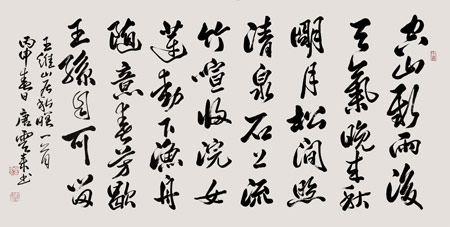 空山新雨後
天氣晚來秋
明月松間照
清泉石上流
竹喧收浣女
蓮動下漁舟
隨意春芳歇
王孫自可留
王維山居秋暝一首
丙申春日唐雲来書